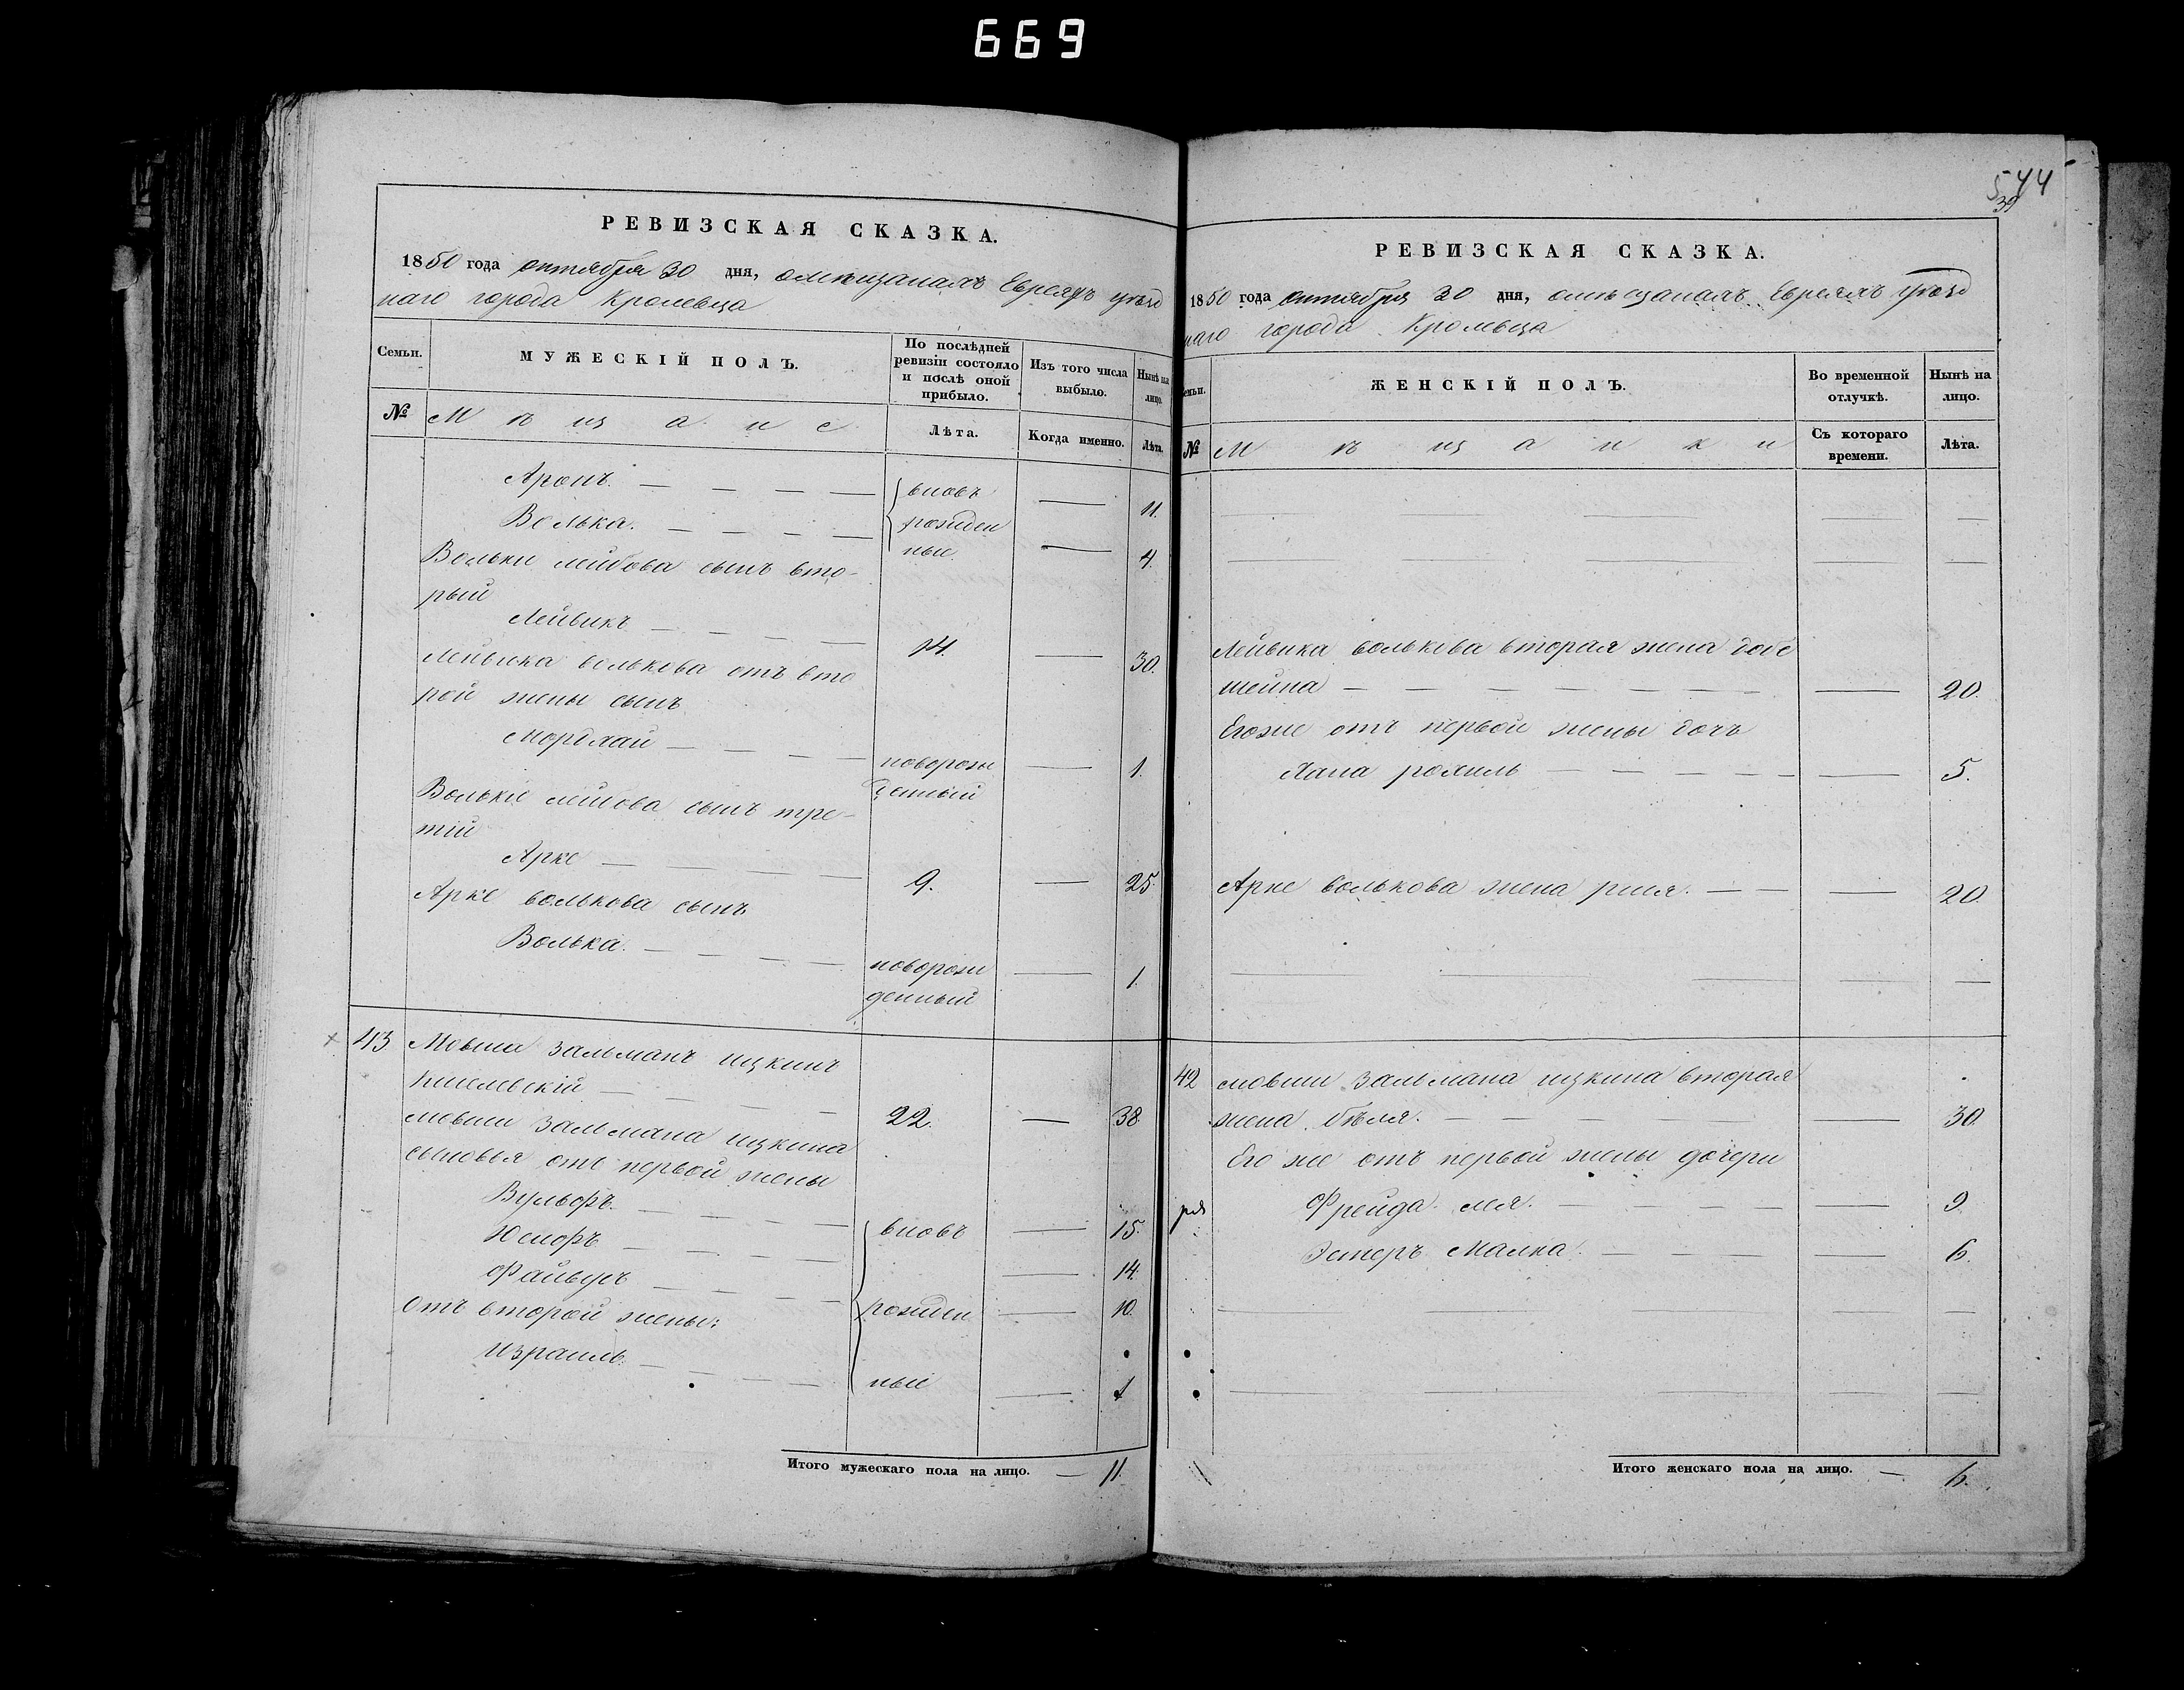 669
РЕВИЗСКАЯ СКАЗКА.
1850 года октября 30 дня, омѣщанахъ Евреяхъ уѣзд
наго города Кролевца
Семьи.
МУЖЕСКІЙ ПОЛЪ.
По послѣдней
ревизіи состояло
и послѣ оной
прибыло.
Изъ того числа
выбыло.
Нынѣ на
лицо.
№
Мѣщане
Лѣта.
Когда именно.
Лѣта.
Аронъ. — — — — вновь — 11.
Волька. — — — — рожден
ные — 4.
Вольки лейбова сынъ вто-
рый
Лейвикъ — — — — 14. — 30.
Лейвика волькова отъ вто
рой жены сынъ
Мордхай — — — новорож — 1.
денный
Вольки лейбова сынъ тре-
тій
Арке — — 9. — 25.
Арке волькова сынъ
Волька. — — — — новорож — 1.
денный
43 Мовша Зальманъ ицкинъ
— — — — 22. — 38.
Мовши Зальмана ицкина
сыновья отъ первой жены
Вульфъ. — — — — вновь — 15.
Юсифъ — — — — 14.
Файвусъ — — — — рожден — 10.
отъ второй жены:
Израиль. — — — — ные — 1
Итого мужескаго пола на лицо. — 11.
544
39
РЕВИЗСКАЯ СКАЗКА.
1850 года октября 30 дня, омѣщанахъ Евреяхъ уѣзд
наго города Кролевца
Семьи.
ЖЕНСКІЙ ПОЛЪ.
Во временной
отлучкѣ.
Нынѣ на
лицо.
№
Мѣщанки
Съ котораго
времени.
Лѣта.
Лейвика волькова вторая жена добе
шейна — — — — — — — 20.
Егоже отъ первой жены дочь
Хана рохиль — — — — — — 5.
Арке волькова жена рися. — — — 20.
42 мовши Зальмана ицкина вторая
жена бѣля. — — — — — 30.
Его же отъ первой жены дочери
Фрейда — — — — — 9.
Эстеръ Малка. — — — — 6.
Итого женскаго пола на лицо. — 6.